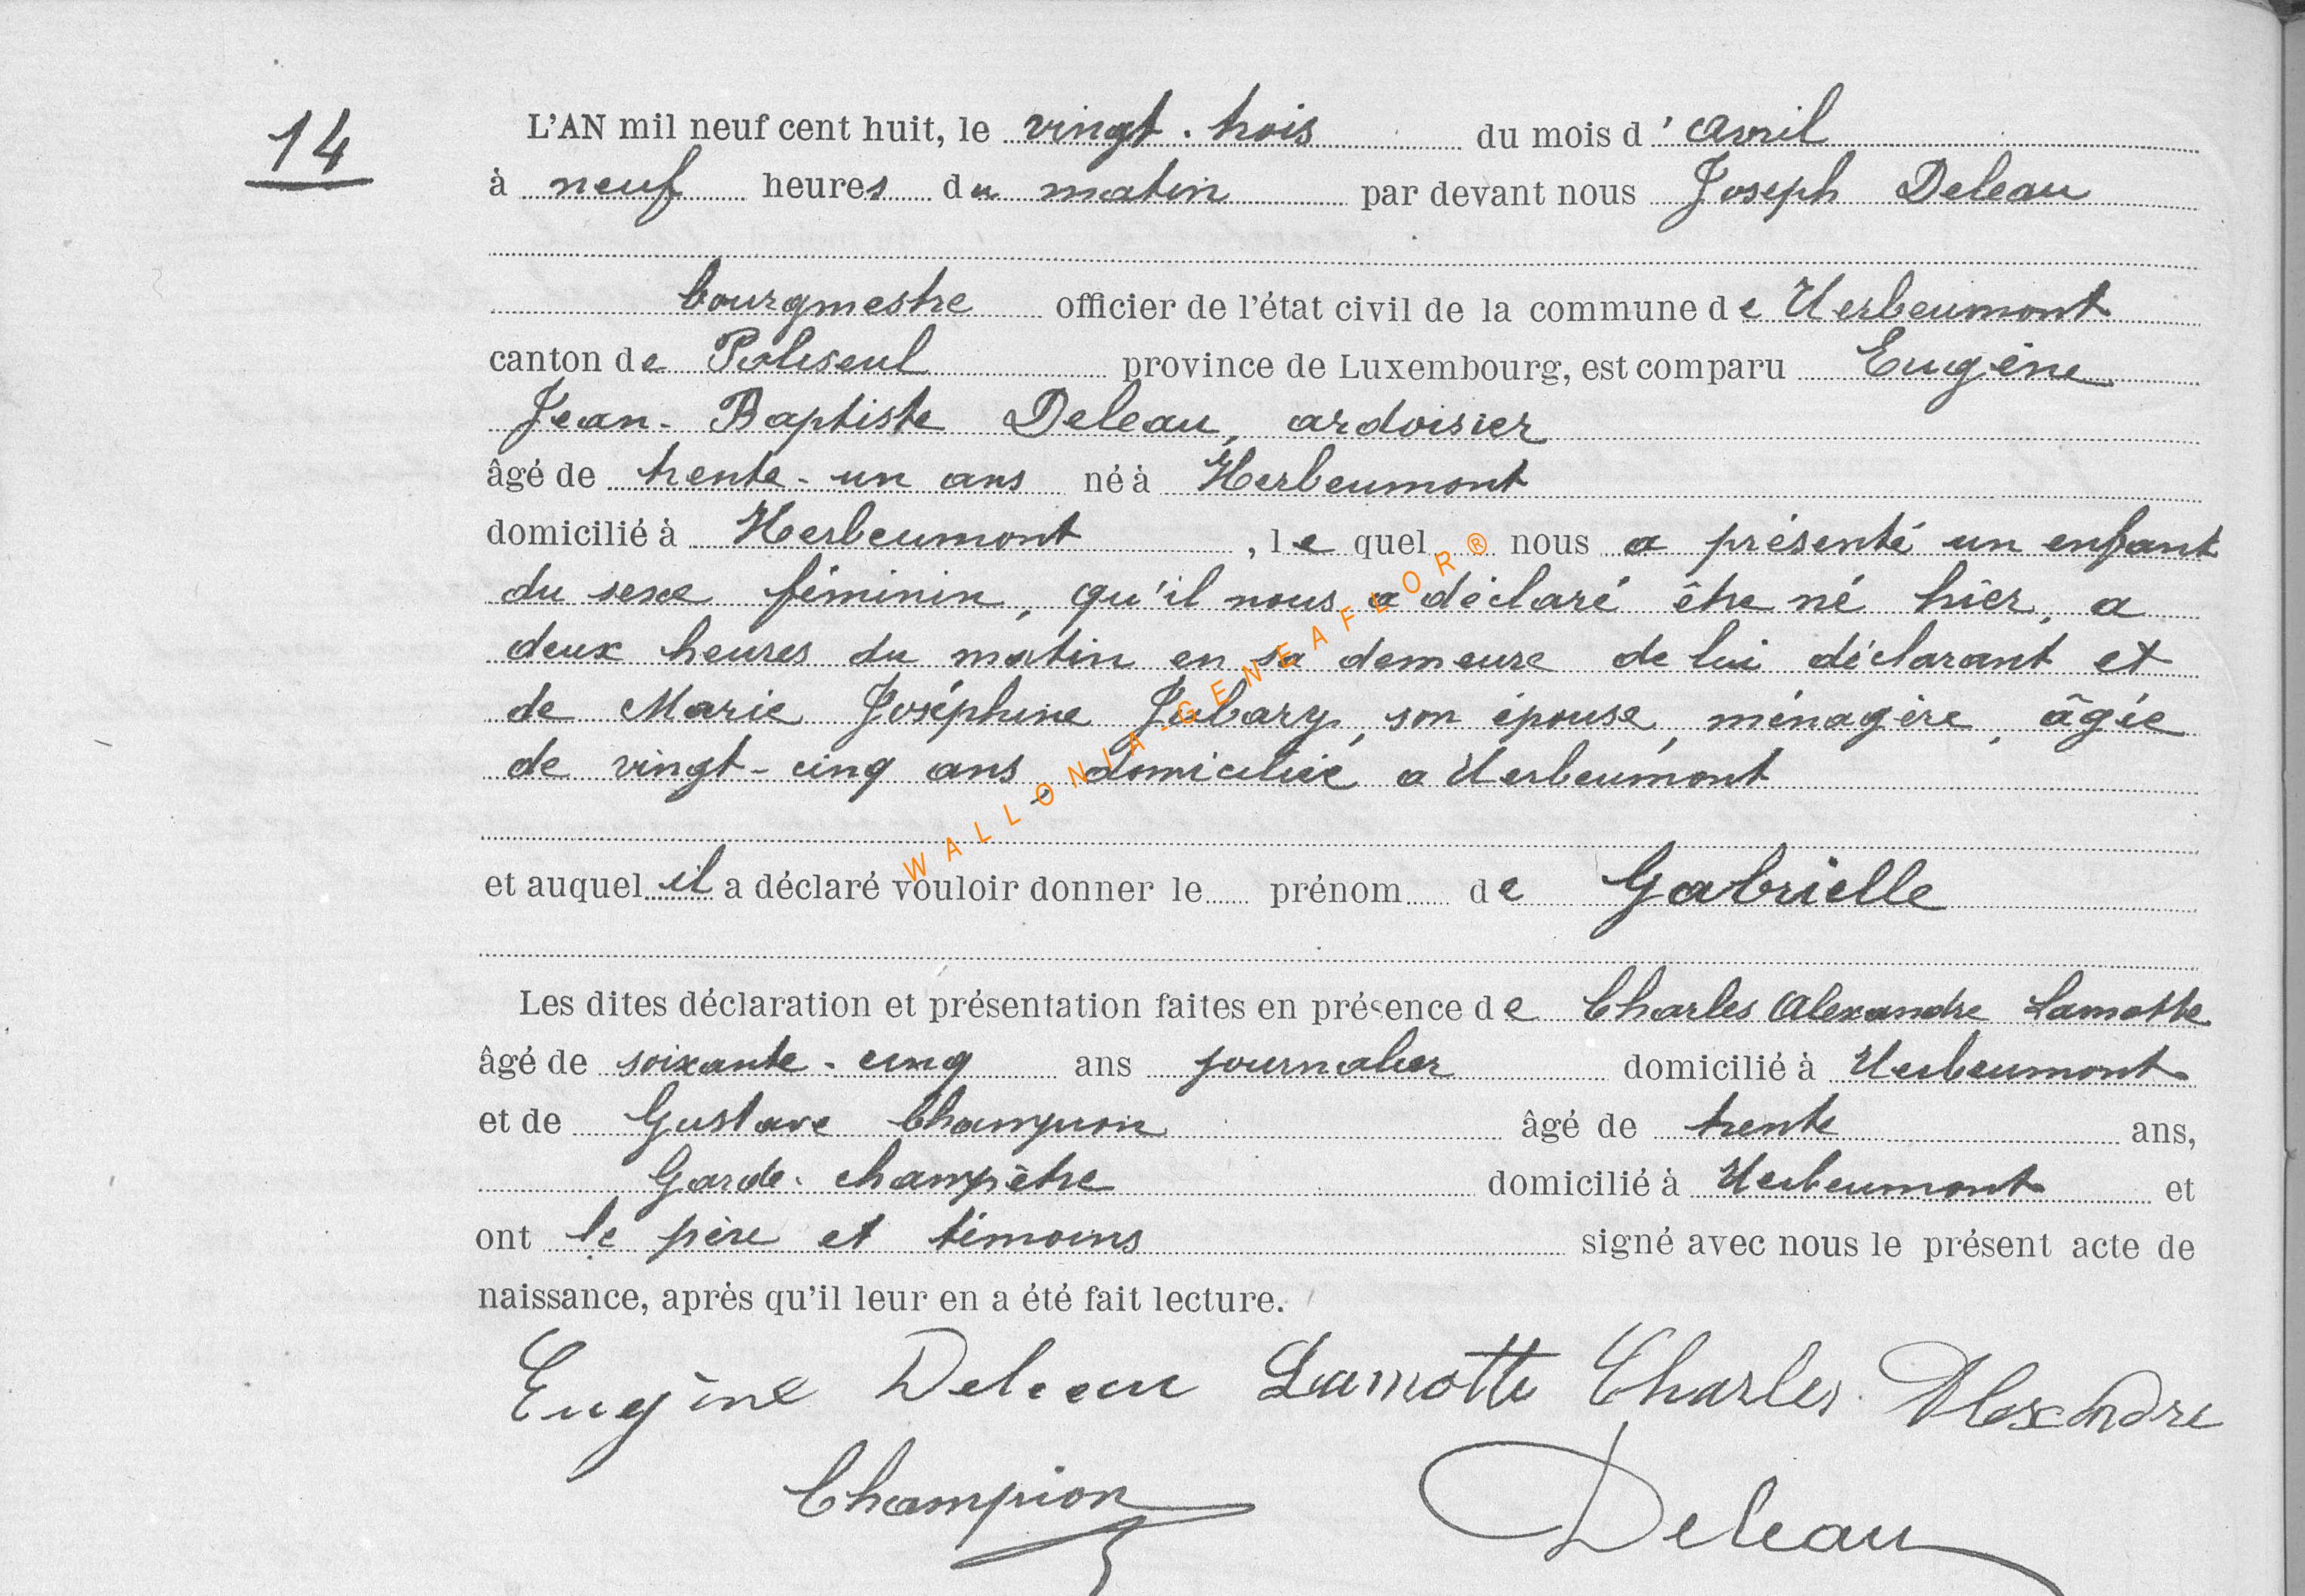 14
L'AN mil neuf cent huit, le vingt-trois du mois d'avril
à neuf heures du matin par devant nous Joseph Deleau
bourgmestre officier de l'état civil de la commune de Herbeumont
canton de Paliseul province de Luxembourg, est comparu Eugène
Jean-Baptiste Deleau, ardoisier
âgé de trente-un ans né à Herbeumont
domicilié à Herbeumont, lequel nous a présenté un enfant
du sexe féminin, qu'il nous a déclaré être né hier, a
deux heures du matin en sa demeure de lui déclarant et
de Marie Joséphine Jubary, son épouse, ménagère, âgée
de vingt-cinq ans, domiciliée a Herbeumont
et auquel il a déclaré vouloir donner le prénom de Gabrielle
Les dites déclaration et présentation faites en présence de Charles Alexandre Lamotte
âgé de soixante-cinq ans journalier domicilié à Herbeumont
et de Gustave Champion âgé de trente ans,
Garde-champêtre domicilié à Herbeumont et
ont le père et témoins signé avec nous le présent acte de
naissance, après qu'il leur en a été fait lecture.
Eugène Deleau Lamotte Charles Alexandre
Champion Deleau
WALLONIA-GENEAFLOR®